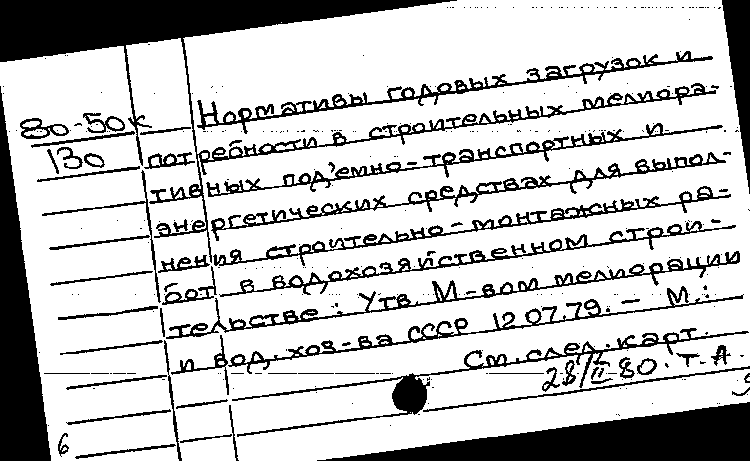 80-50к
130
Нормативы годовых загрузок и
потребности в строительных мелиора-
тивных под'емно-транспортных и
энергетических средствах для выпол-
нения строительно-монтажных ра-
бот в водохозяйственном строи-
тельстве: Утв. М-вом мелиорации
и вод. хоз-ва СССР 12 07.79. — М.:
См. след. карт.
28/II 80. Т. А.
6